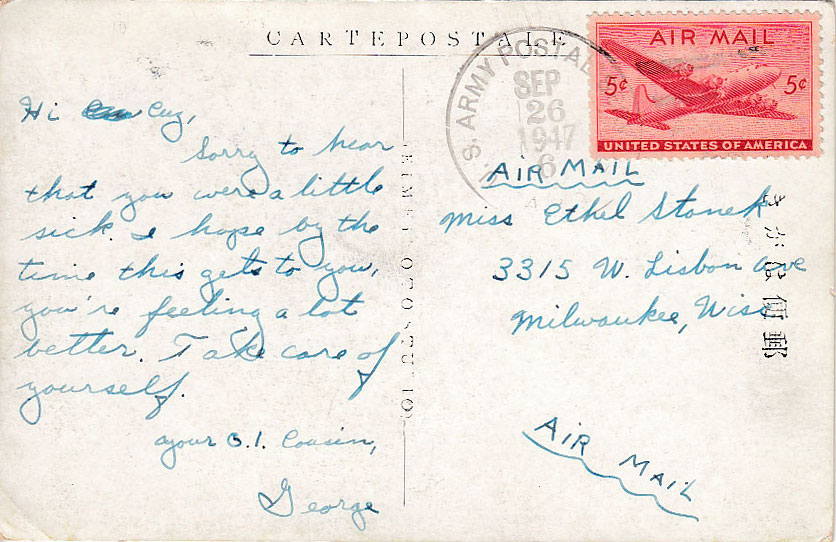 CARTE POSTALE
U.S. ARMY POSTAL
SEP
26
1947
6
AIR MAIL
5¢ 5¢
UNITED STATES OF AMERICA
Hi Cuz,
Sorry to hear
that you were a little
sick. I hope by the
time this gets to you,
you're feeling a lot
better. Take care of
yourself.
your G.I. Cousin,
George
AIR MAIL
Miss Ethel Stanek
3315 W. Lisbon Ave
Milwaukee, Wisc
AIR MAIL
郵便はがき